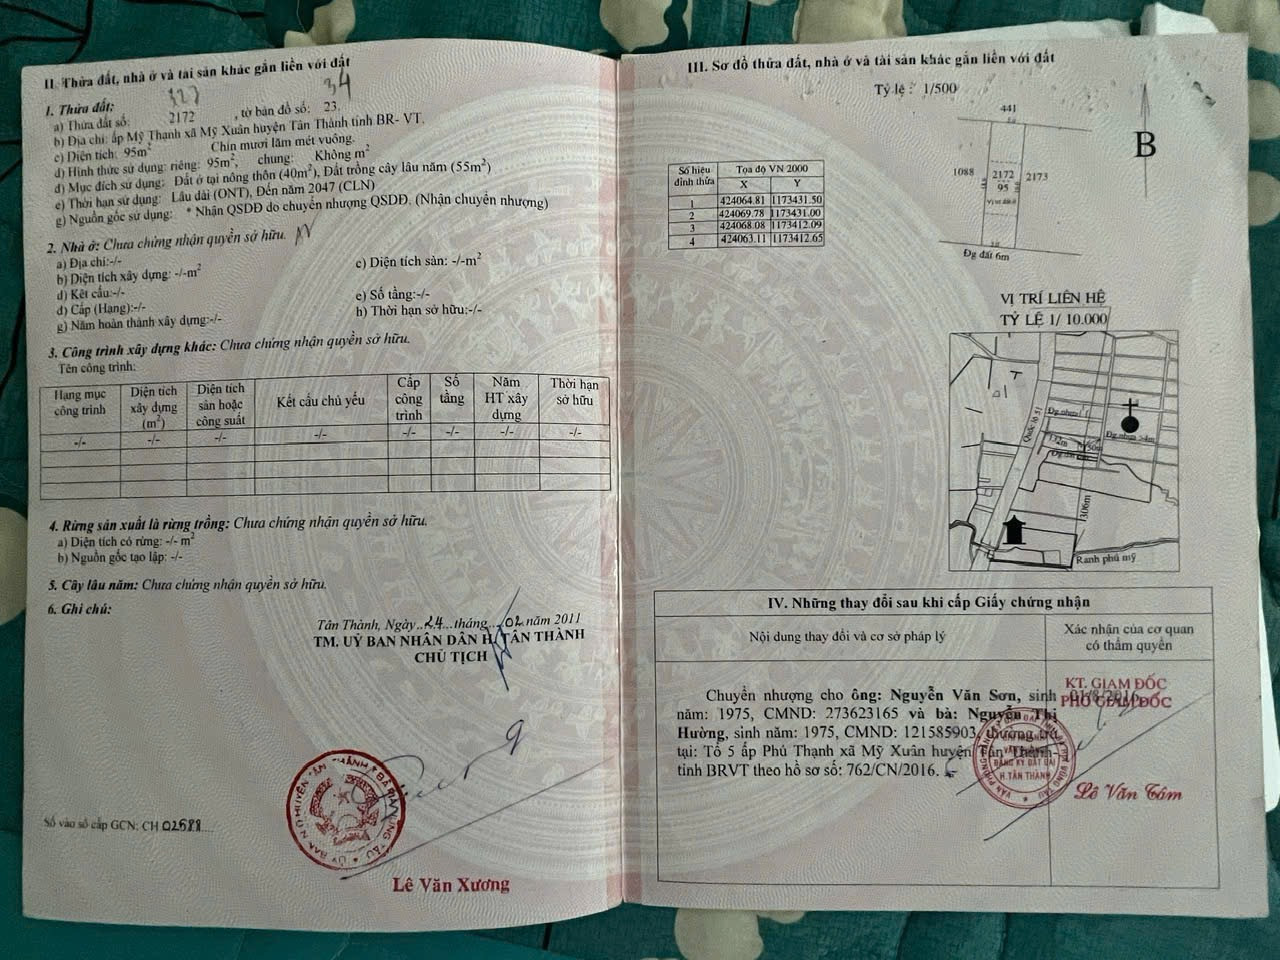 II. Thửa đất, nhà ở và tài sản khác gắn liền với đất
1. Thửa đất: 327 34
a) Thửa đất số: 2172 , tờ bản đồ số: 23.
b) Địa chỉ: ấp Mỹ Thạnh xã Mỹ Xuân huyện Tân Thành tỉnh BR- VT.
c) Diện tích: 95m² Chín mươi lăm mét vuông.
d) Hình thức sử dụng: riêng: 95m², chung: Không m²
đ) Mục đích sử dụng: Đất ở tại nông thôn (40m²), Đất trồng cây lâu năm (55m²)
e) Thời hạn sử dụng: Lâu dài (ONT), Đến năm 2047 (CLN)
g) Nguồn gốc sử dụng: * Nhận QSDĐ do chuyển nhượng QSDĐ. (Nhận chuyển nhượng)
2. Nhà ở: Chưa chứng nhận quyền sở hữu.
a) Địa chỉ:-/-
b) Diện tích xây dựng: -/-m² c) Diện tích sàn: -/-m²
d) Kết cấu:-/- e) Số tầng:-/-
đ) Cấp (Hạng):-/- h) Thời hạn sở hữu:-/-
g) Năm hoàn thành xây dựng:-/-
3. Công trình xây dựng khác: Chưa chứng nhận quyền sở hữu.
Tên công trình:
Hạng mục công trình Diện tích xây dựng (m²) Diện tích sàn hoặc công suất Kết cấu chủ yếu Cấp công trình Số tầng Năm HT xây dựng Thời hạn sở hữu
-/- -/- -/- -/- -/- -/- -/- -/-
4. Rừng sản xuất là rừng trồng: Chưa chứng nhận quyền sở hữu.
a) Diện tích có rừng: -/- m²
b) Nguồn gốc tạo lập: -/-
5. Cây lâu năm: Chưa chứng nhận quyền sở hữu.
6. Ghi chú:
Tân Thành, Ngày..24...tháng...02 năm 2011
TM. UỶ BAN NHÂN DÂN H. TÂN THÀNH
CHỦ TỊCH
Số vào sổ cấp GCN: CH 02688
Lê Văn Xương
III. Sơ đồ thửa đất, nhà ở và tài sản khác gắn liền với đất
Tỷ lệ : 1/500
Số hiệu đỉnh thửa Tọa độ VN 2000
X Y
1 424064.81 1173431.50
2 424069.78 1173431.00
3 424068.08 1173412.09
4 424063.11 1173412.65
441
B
1088 2172 2173
95
Đg đất 6m
VỊ TRÍ LIÊN HỆ
TỶ LỆ 1/ 10.000
T
Quốc lộ 51
Đg nhựa
Đg nhựa >4m
132m
1306m
Ranh phú mỹ
IV. Những thay đổi sau khi cấp Giấy chứng nhận
Nội dung thay đổi và cơ sở pháp lý
Xác nhận của cơ quan có thẩm quyền
Chuyển nhượng cho ông: Nguyễn Văn Sơn, sinh
năm: 1975, CMND: 273623165 và bà: Nguyễn Thị
Hường, sinh năm: 1975, CMND: 121585903, thường trú
tại: Tổ 5 ấp Phú Thạnh xã Mỹ Xuân huyện Tân Thành-
tỉnh BRVT theo hồ sơ số: 762/CN/2016.
01/8/2016
KT. GIÁM ĐỐC
PHÓ GIÁM ĐỐC
ĐĂNG KÝ ĐẤT ĐAI
H. TÂN THÀNH
Lê Văn Tám